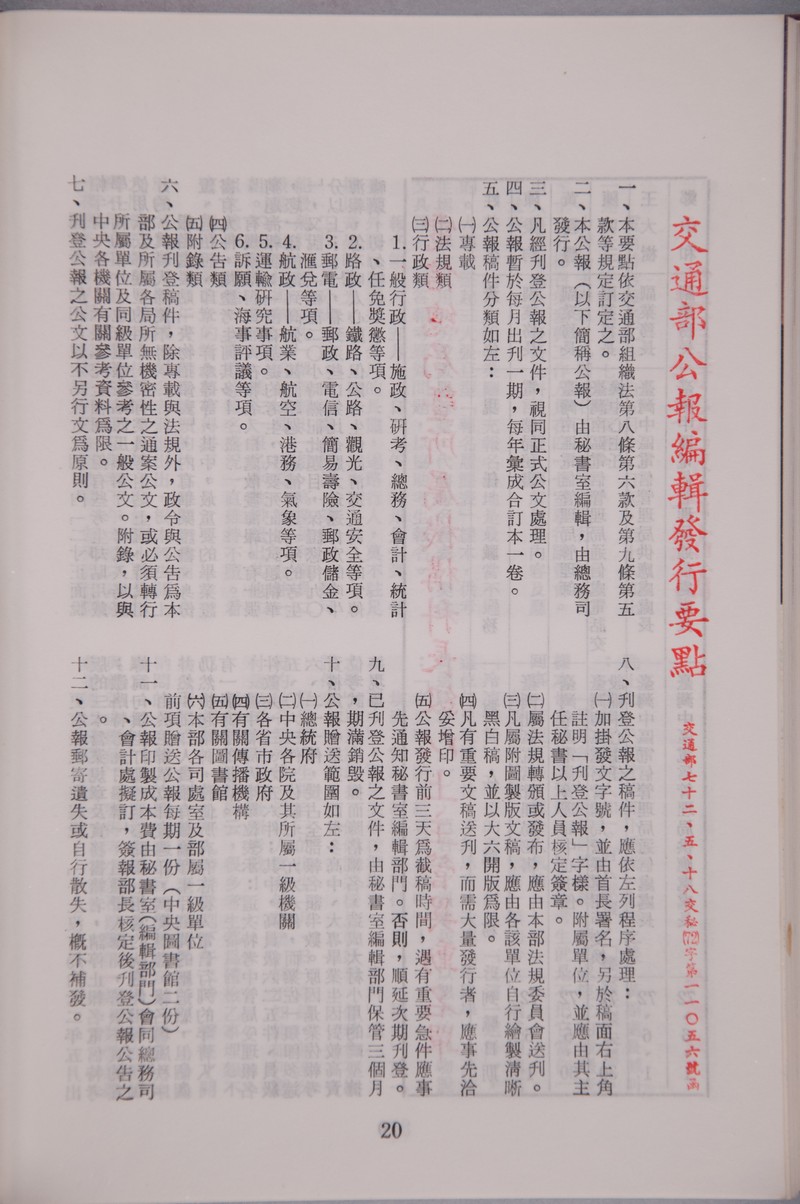 交通部公報編輯發行要點
交通部七十二、五、十八交秘(72)字第一一〇五六號函
一、本要點依交通部組織法第八條第六款及第九條第五
款等規定訂定之。
二、本公報（以下簡稱公報）由秘書室編輯，由總務司
發行。
三、凡經刋登公報之文件，視同正式公文處理。
四、公報暫於每月出刋一期，每年彙成合訂本一卷。
五、公報稿件分類如左：
㈠專載
㈡法規類
㈢行政類
1.一般行政——施政、硏考、總務、會計、統計
、任免獎懲等項。
2.路政——鐵路、公路、觀光、交通安全等項。
3.郵電——郵政、電信、簡易壽險、郵政儲金、
滙兌等項。
4.航政——航業、航空、港務、氣象等項。
5.運輸硏究事項。
6.訴願、海事評議等項。
㈣公告類
㈤附錄類
六、公報刋登稿件，除專載與法規外，政令與公告爲本
部及所屬各局所無機密性之通案公文，或必須轉行
所屬單位及同級單位參考之一般公文。附錄，以與
中央各機關有關參考資料爲限。
七、刋登公報之公文以不另行文爲原則。
八、刋登公報之稿件，應依左列程序處理：
㈠加掛發文字號，並由首長署名，另於稿面右上角
註明「刋登公報」字樣。附屬單位，並應由其主
任秘書以上人員核定簽章。
㈡屬法規轉頒或發布，應由本部法規委員會送刋。
㈢凡屬附圖製版文稿，應由各該單位自行繪製淸晰
黑白稿，並以大六開版爲限。
㈣凡有重要文稿送刋，而需大量發行者，應事先洽
妥增印。
㈤公報發行前三天爲截稿時間，遇有重要急件應事
先通知秘書室編輯部門。否則，順延次期刋登。
九、已刋登公報之文件，由秘書室編輯部門保管三個月
，期滿銷毀。
十、公報贈送範圍如左：
㈠總統府
㈡中央各院及其所屬一級機關
㈢各省市政府
㈣有關傳播機構
㈤有關圖書館
㈥本部各司處室及部屬一級單位
前項贈送公報每期一份（中央圖書館二份）
十一、公報印製成本費由秘書室（編輯部門）會同總務司
、會計處擬訂，簽報部長核定後刋登公報公告之
。
十二、公報郵寄遺失或自行散失，槪不補發。
20